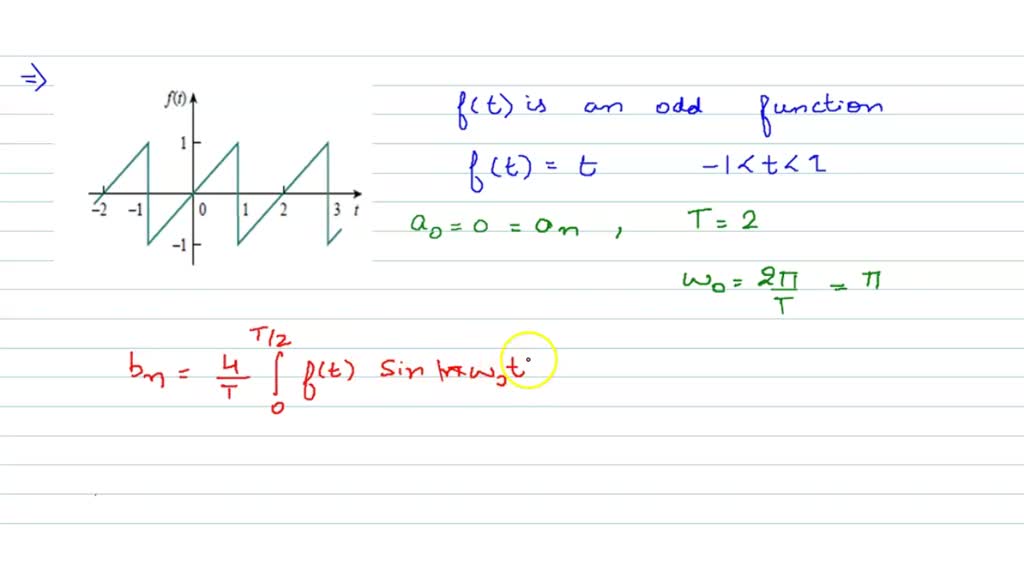 ⇒
f(t)
1
-2 -1 0 1 2 3 t
-1
f(t) is an odd function
f(t) = t -1 < t < 1
a₀ = 0 = aₙ , T = 2
ω₀ = 2π/T = π
bₙ = 4/T ∫₀^T/2 f(t) sin nω₀t